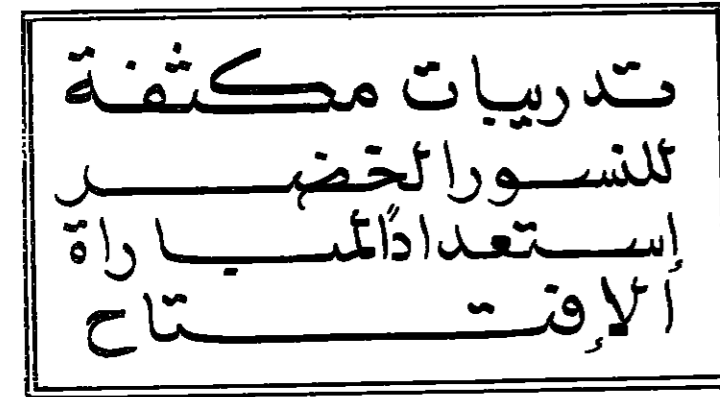 تدريبات مكثفة
للنسور الخضر
إستعداداً لمباراة
الإفتتاح